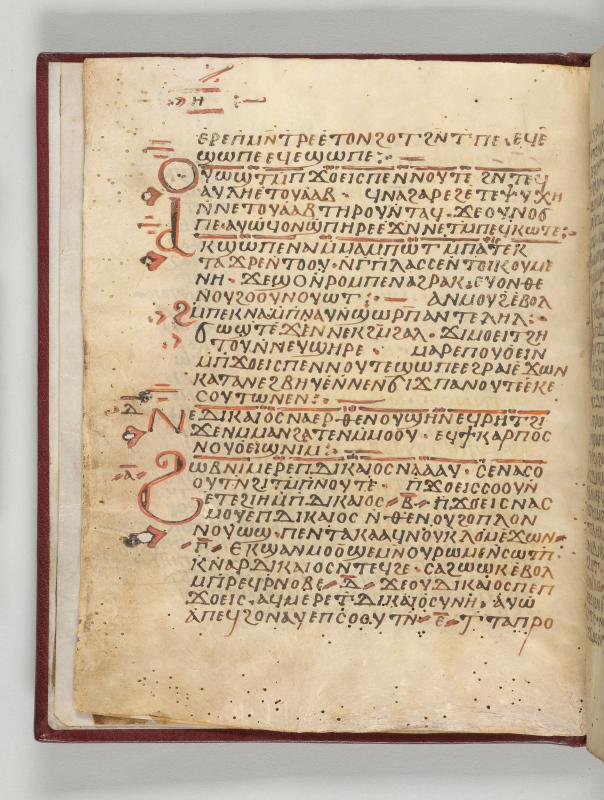 ⲏ
ⲉⲣⲉⲡⲙⲛⲧⲣⲉ ⲉⲧⲟⲛϩⲟⲧ ϩⲛⲧⲡⲉ · ⲉϥⲉ
ϣⲱⲡⲉ ⲉϥⲉϣⲱⲡⲉ
ⲟⲩⲱϣⲧ ⲙⲡϫⲟⲉⲓⲥ ⲡⲉⲛⲛⲟⲩⲧⲉ ϩⲛ ⲧⲉϥ
ⲁⲩⲗⲏ ⲉⲧⲟⲩⲁⲁⲃ · ϥⲛⲁϩⲁⲣⲉϩ ⲉⲧⲉⲯⲩⲭⲏ
ⲛⲛⲉⲧⲟⲩⲁⲁⲃ ⲧⲏⲣⲟⲩ ⲛⲧⲁϥ · ϫⲉⲟⲩⲛⲟϭ
ⲡⲉ · ⲁⲩⲱ ϥⲟⲛϣⲡⲏⲣⲉ ⲉϫⲛⲛⲉⲧⲙⲡⲉϥⲕⲱⲧⲉ
ⲁⲕϣⲱⲡⲉ ⲛⲁⲛ ⲙⲙⲁⲙⲡⲱⲧ ⲙⲡⲁⲧⲉⲕ
ⲧⲁϫⲣⲉⲛⲧⲟⲟⲩ · ⲛⲅⲡⲗⲁⲥⲥⲉ ⲛⲧⲟⲓⲕⲟⲩⲙⲉ
ⲛⲏ · ϫⲉϣⲟ ⲛⲣⲟⲙⲡⲉ ⲛⲁϩⲣⲁⲕ · ⲉⲩⲟ ⲛⲑⲉ
ⲛⲟⲩϩⲟⲟⲩ ⲛⲟⲩⲱⲧ ⲁⲛⲙⲟⲩϩ ⲉⲃⲟⲗ
ϩⲙⲡⲉⲕⲛⲁ ⲙⲡⲛⲁⲩ ⲛϣⲱⲣⲡ ⲁⲛⲧⲉⲗⲏⲗ
ϭⲱϣⲧ ⲉϫⲉⲛⲛⲉⲕϩⲙϩⲁⲗ · ϫⲓⲙⲟⲉⲓⲧ ϩⲏ
ⲧⲟⲩ ⲛⲛⲉⲩϣⲏⲣⲉ · ⲙⲁⲣⲉⲡⲟⲩⲟⲉⲓⲛ
ⲙⲡϫⲟⲉⲓⲥ ⲡⲉⲛⲛⲟⲩⲧⲉ ϣⲱⲡⲉ ⲉϩⲣⲁⲓ ⲉϫⲱⲛ
ⲕⲁⲧⲁ ⲛⲉϩⲃⲏⲩⲉ ⲛⲛⲉⲛϭⲓϫ ⲡⲁⲛⲟⲩⲧⲉ ⲉⲕⲉ
ⲥⲟⲩⲧⲱⲛⲉⲛ
ⲛⲉⲇⲓⲕⲁⲓⲟⲥ ⲛⲁⲉⲣ ⲑⲉ ⲛⲟⲩϣⲏⲛ ⲉϥⲣⲏⲧ ϩⲓ
ϫⲉⲛⲙⲙⲁⲛϩⲁⲧⲉ ⲛⲙⲙⲟⲟⲩ · ⲉϥϯⲕⲁⲣⲡⲟⲥ
ⲛⲟⲩⲟⲉⲓϣ ⲛⲓⲙ
ⲁ
ϩⲱⲃ ⲛⲓⲙ ⲉⲣⲉⲡⲇⲓⲕⲁⲓⲟⲥ ⲛⲁⲁⲁⲩ · ⲥⲉⲛⲁⲥⲟ
ⲟⲩⲧⲛ ϩⲓⲧⲙⲡⲛⲟⲩⲧⲉ · ⲡϫⲟⲉⲓⲥ ⲥⲟⲟⲩⲛ
ⲉⲧⲉϩⲓⲏ ⲙⲡⲇⲓⲕⲁⲓⲟⲥ ⲃ ⲡϫⲟⲉⲓⲥ ⲛⲁⲥ
ⲙⲟⲩ ⲉⲡⲇⲓⲕⲁⲓⲟⲥ ⲛⲑⲉ ⲛⲟⲩϩⲟⲡⲗⲟⲛ
ⲛⲟⲩⲱϣ · ⲡⲉⲛⲧⲁⲕⲁⲁϥ ⲛⲟⲩⲕⲗⲟⲙ ⲉϫⲱⲛ
ⲅ ⲉⲕϣⲁⲛⲙⲟⲟϣⲉ ⲙⲛⲟⲩⲣⲱⲙⲉ ⲛⲥⲱⲧⲡ ·
ⲕⲛⲁⲣⲇⲓⲕⲁⲓⲟⲥ ⲛⲧⲉⲩϩⲉ · ⲥⲁϩⲱⲱⲕ ⲉⲃⲟⲗ
ⲙⲡⲣⲉϥⲣⲛⲟⲃⲉ ⲇ ϫⲉⲟⲩⲇⲓⲕⲁⲓⲟⲥ ⲡⲉ ⲡ
ϫⲟⲉⲓⲥ · ⲁϥⲙⲉⲣⲉⲧⲇⲓⲕⲁⲓⲟⲥⲩⲛⲏ · ⲁⲩⲱ
ⲁⲡⲉϥϩⲟ ⲛⲁⲩ ⲉⲡⲥⲟⲟⲩⲧⲛ ⲉ ⲧⲧⲁⲡⲣⲟ